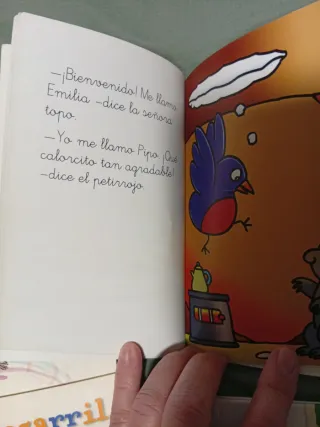 —¡Bienvenido! Me llamo
Emilia —dice la señora
topo.
—Yo me llamo Pipo. ¡Qué
calorcito tan agradable!
—dice el petirrojo.
arril